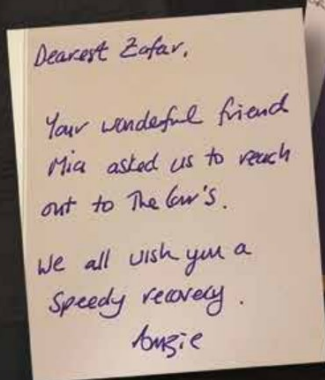 Dearest Zafar,
Your wonderful friend
Mia asked us to reach
out to The Cure's.
We all wish you a
Speedy recovery.
Angie